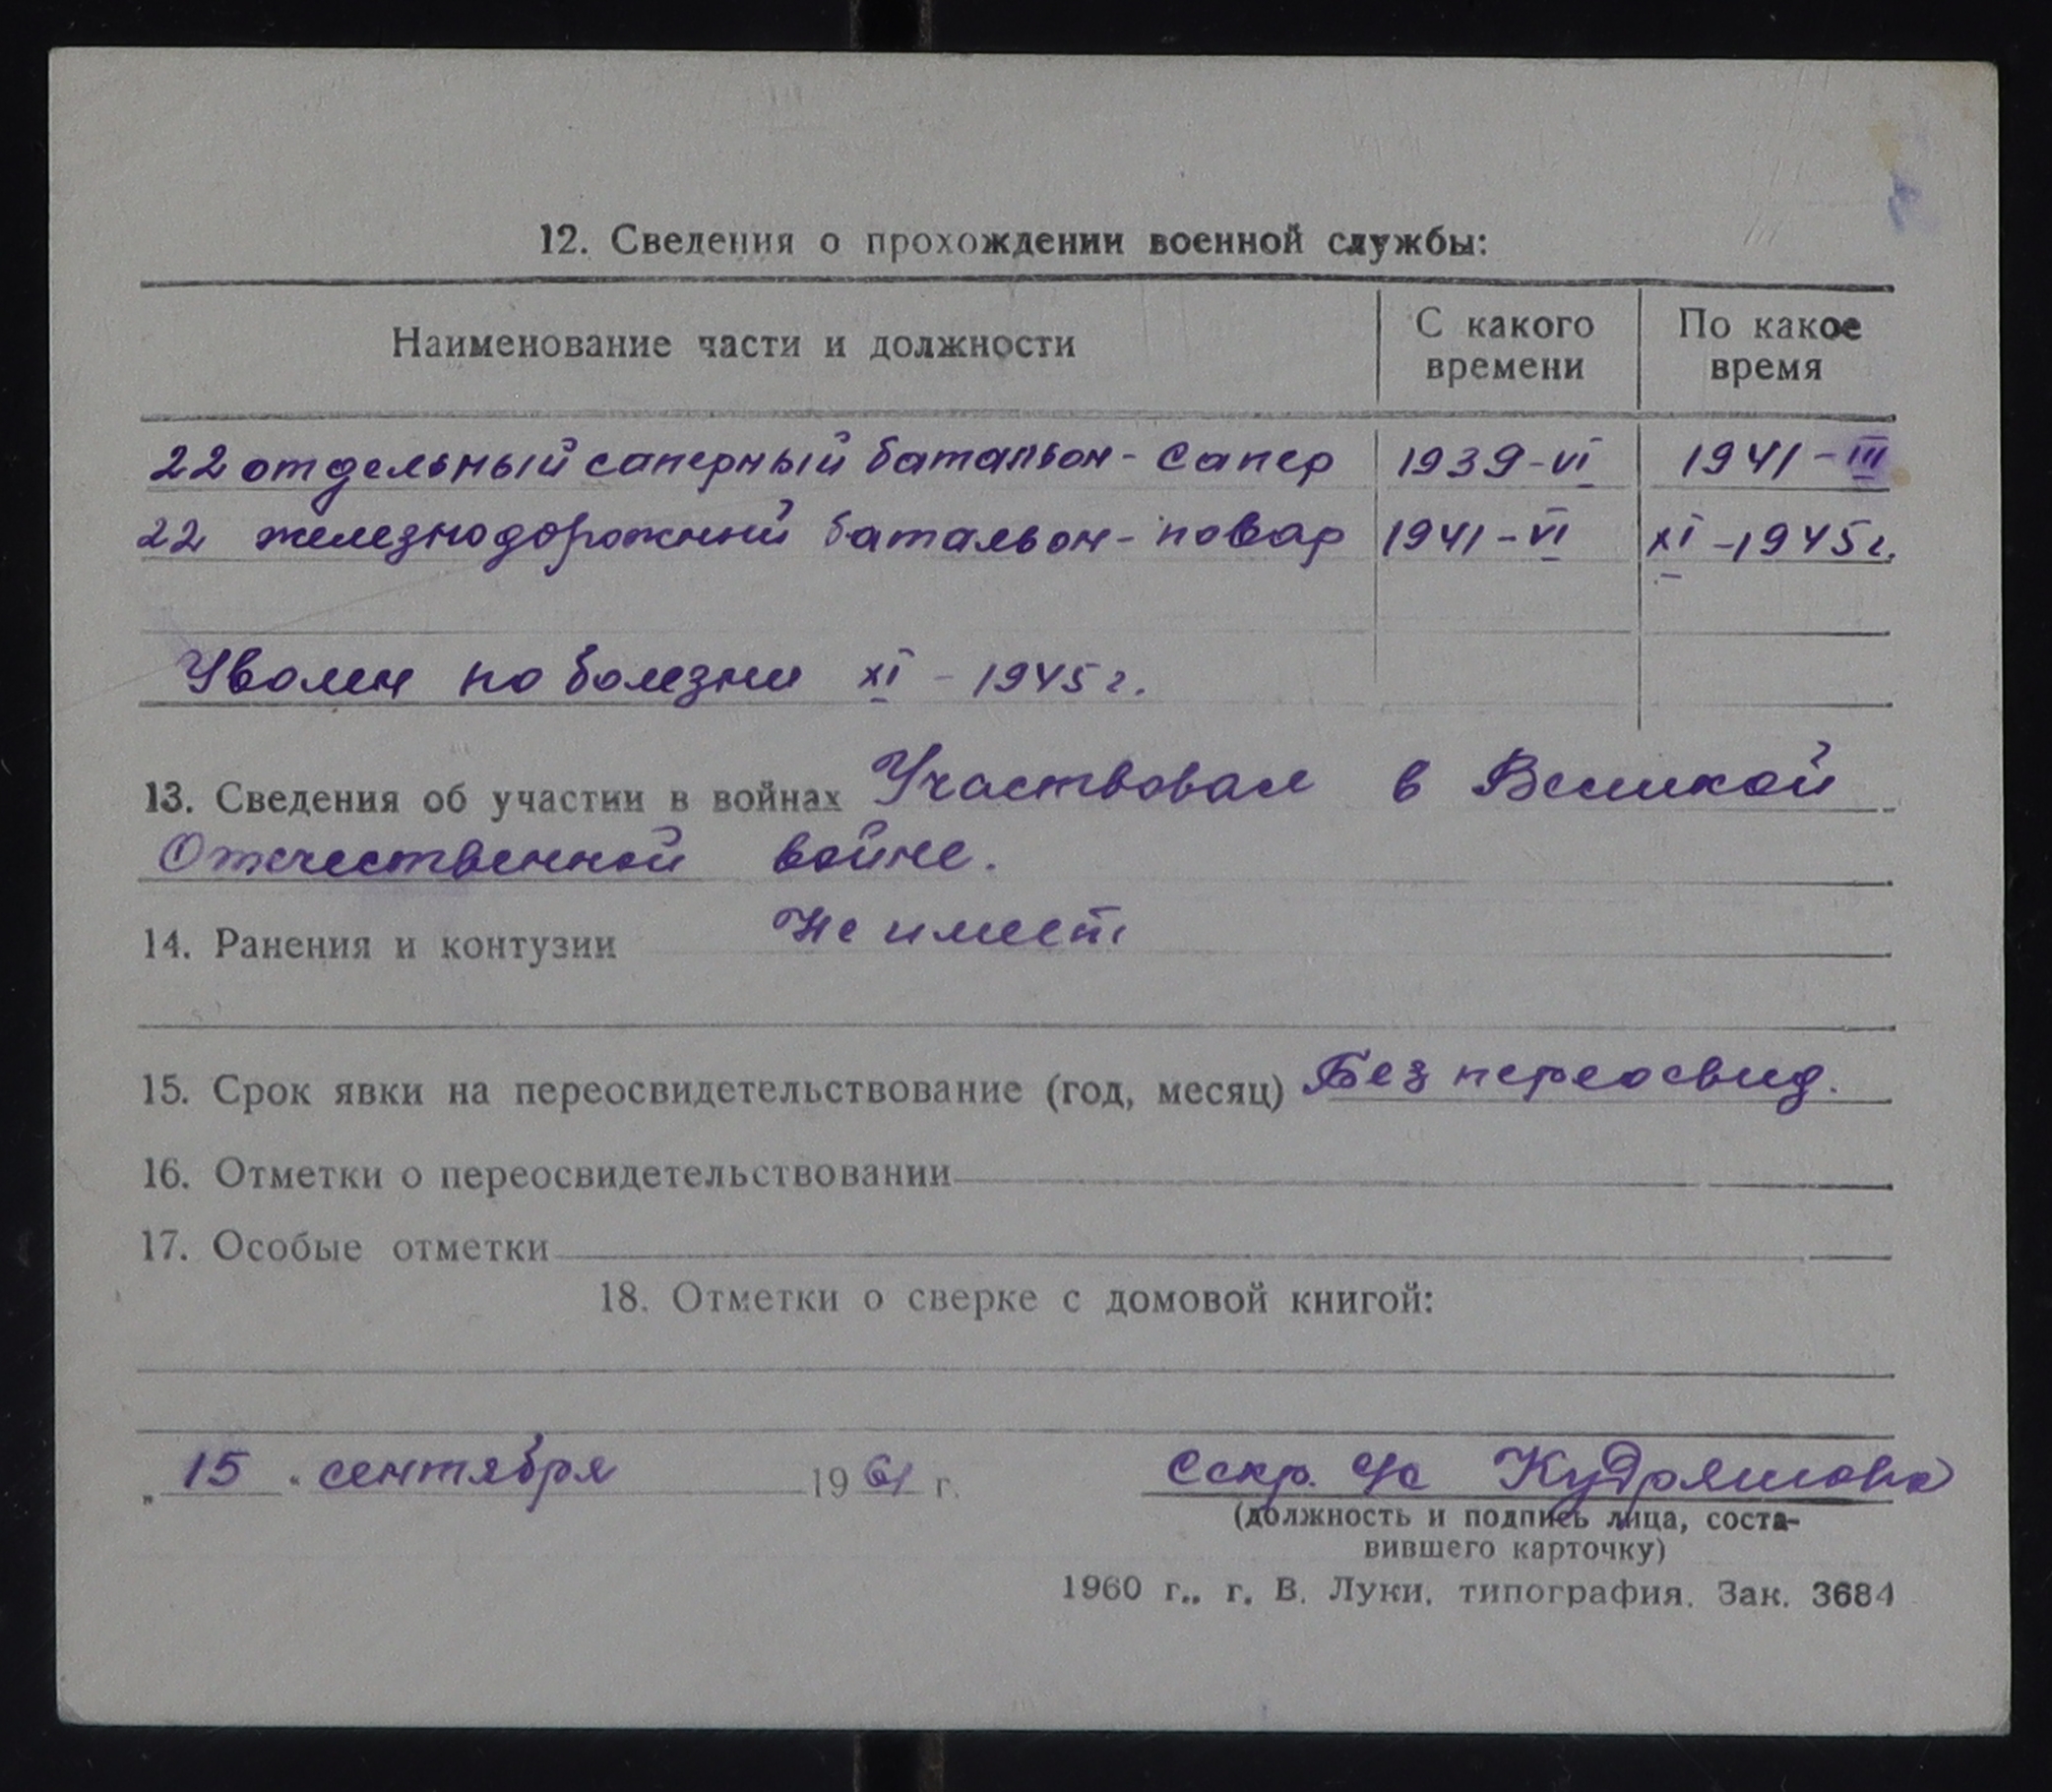 12. Сведения о прохождении военной службы:
Наименование части и должности
С какого времени
По какое время
22 отдельный саперный батальон - сапер 1939-VI 1941-III
22 железнодорожный батальон - повар 1941-VI XI-1945 г.
Уволен по болезни XI - 1945 г.
13. Сведения об участии в войнах Участвовал в Великой
Отечественной войне.
14. Ранения и контузии Не имеет
15. Срок явки на переосвидетельствование (год, месяц) Без переосвид.
16. Отметки о переосвидетельствовании
17. Особые отметки
18. Отметки о сверке с домовой книгой:
„ 15 " сентября 1961 г. Секр. с/с Кудряшова
(должность и подпись лица, соста-
вившего карточку)
1960 г., г. В. Луки, типография. Зак. 3684